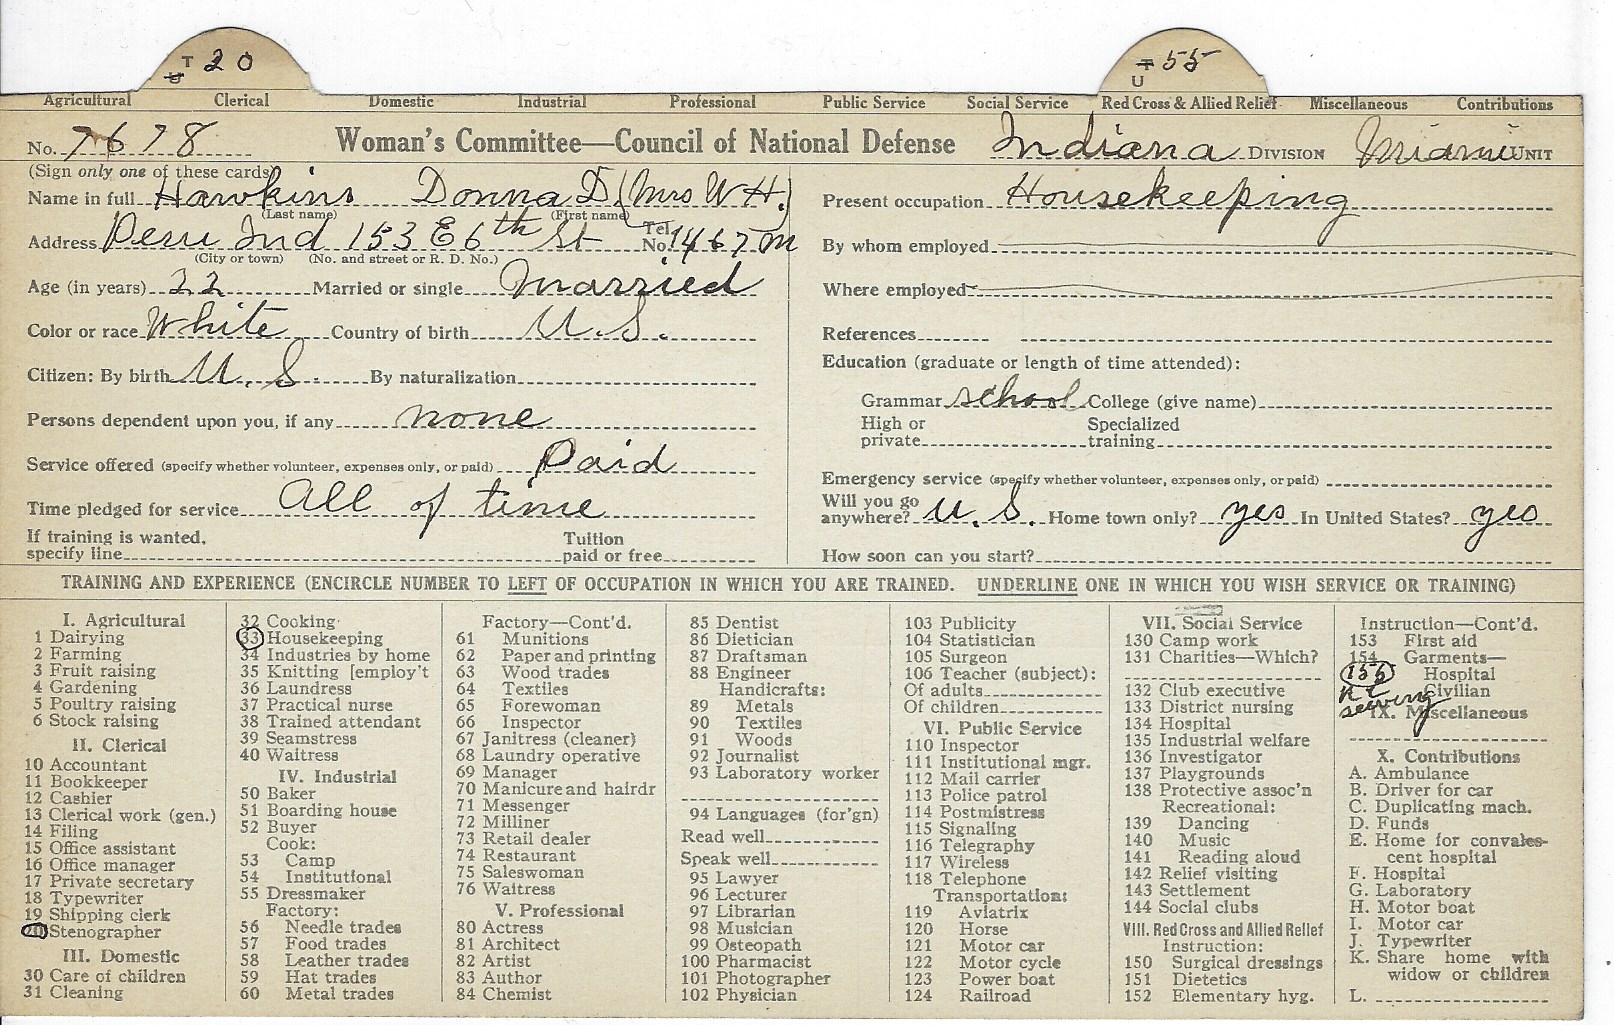 T 20
U
T 55
U
Agricultural Clerical Domestic Industrial Professional Public Service Social Service Red Cross & Allied Relief Miscellaneous Contributions
No. 7678 Woman's Committee—Council of National Defense Indiana DIVISION Miami UNIT
(Sign only one of these cards)
Name in full Hawkins Donna D (Mrs W H.)
(Last name) (First name)
Address Peru Ind 153 E 6th St Tel. No. 1467 M
(City or town) (No. and street or R. D. No.)
Age (in years) 22 Married or single Married
Color or race White Country of birth U.S.
Citizen: By birth U.S. By naturalization
Persons dependent upon you, if any none
Service offered (specify whether volunteer, expenses only, or paid) Paid
Time pledged for service All of time
If training is wanted, specify line Tuition paid or free
Present occupation Housekeeping
By whom employed
Where employed
References
Education (graduate or length of time attended):
Grammar school College (give name)
High or private Specialized training
Emergency service (specify whether volunteer, expenses only, or paid)
Will you go anywhere? U.S. Home town only? yes In United States? yes
How soon can you start?
TRAINING AND EXPERIENCE (ENCIRCLE NUMBER TO LEFT OF OCCUPATION IN WHICH YOU ARE TRAINED. UNDERLINE ONE IN WHICH YOU WISH SERVICE OR TRAINING)
I. Agricultural
1 Dairying
2 Farming
3 Fruit raising
4 Gardening
5 Poultry raising
6 Stock raising
II. Clerical
10 Accountant
11 Bookkeeper
12 Cashier
13 Clerical work (gen.)
14 Filing
15 Office assistant
16 Office manager
17 Private secretary
18 Typewriter
19 Shipping clerk
20 Stenographer
III. Domestic
30 Care of children
31 Cleaning
32 Cooking
33 Housekeeping
34 Industries by home
35 Knitting [employ't
36 Laundress
37 Practical nurse
38 Trained attendant
39 Seamstress
40 Waitress
IV. Industrial
50 Baker
51 Boarding house
52 Buyer
Cook:
53 Camp
54 Institutional
55 Dressmaker
Factory:
56 Needle trades
57 Food trades
58 Leather trades
59 Hat trades
60 Metal trades
Factory—Cont'd.
61 Munitions
62 Paper and printing
63 Wood trades
64 Textiles
65 Forewoman
66 Inspector
67 Janitress (cleaner)
68 Laundry operative
69 Manager
70 Manicure and hairdr
71 Messenger
72 Milliner
73 Retail dealer
74 Restaurant
75 Saleswoman
76 Waitress
V. Professional
80 Actress
81 Architect
82 Artist
83 Author
84 Chemist
85 Dentist
86 Dietician
87 Draftsman
88 Engineer
Handicrafts:
89 Metals
90 Textiles
91 Woods
92 Journalist
93 Laboratory worker
94 Languages (for'gn)
Read well
Speak well
95 Lawyer
96 Lecturer
97 Librarian
98 Musician
99 Osteopath
100 Pharmacist
101 Photographer
102 Physician
103 Publicity
104 Statistician
105 Surgeon
106 Teacher (subject):
Of adults
Of children
VI. Public Service
110 Inspector
111 Institutional mgr.
112 Mail carrier
113 Police patrol
114 Postmistress
115 Signaling
116 Telegraphy
117 Wireless
118 Telephone
Transportation:
119 Aviatrix
120 Horse
121 Motor car
122 Motor cycle
123 Power boat
124 Railroad
VII. Social Service
130 Camp work
131 Charities—Which?
132 Club executive
133 District nursing
134 Hospital
135 Industrial welfare
136 Investigator
137 Playgrounds
138 Protective assoc'n
Recreational:
139 Dancing
140 Music
141 Reading aloud
142 Relief visiting
143 Settlement
144 Social clubs
VIII. Red Cross and Allied Relief
Instruction:
150 Surgical dressings
151 Dietetics
152 Elementary hyg.
Instruction—Cont'd.
153 First aid
154 Garments—
155 Hospital
Civilian
sewing
IX. Miscellaneous
X. Contributions
A. Ambulance
B. Driver for car
C. Duplicating mach.
D. Funds
E. Home for convalescent hospital
F. Hospital
G. Laboratory
H. Motor boat
I. Motor car
J. Typewriter
K. Share home with widow or children
L.